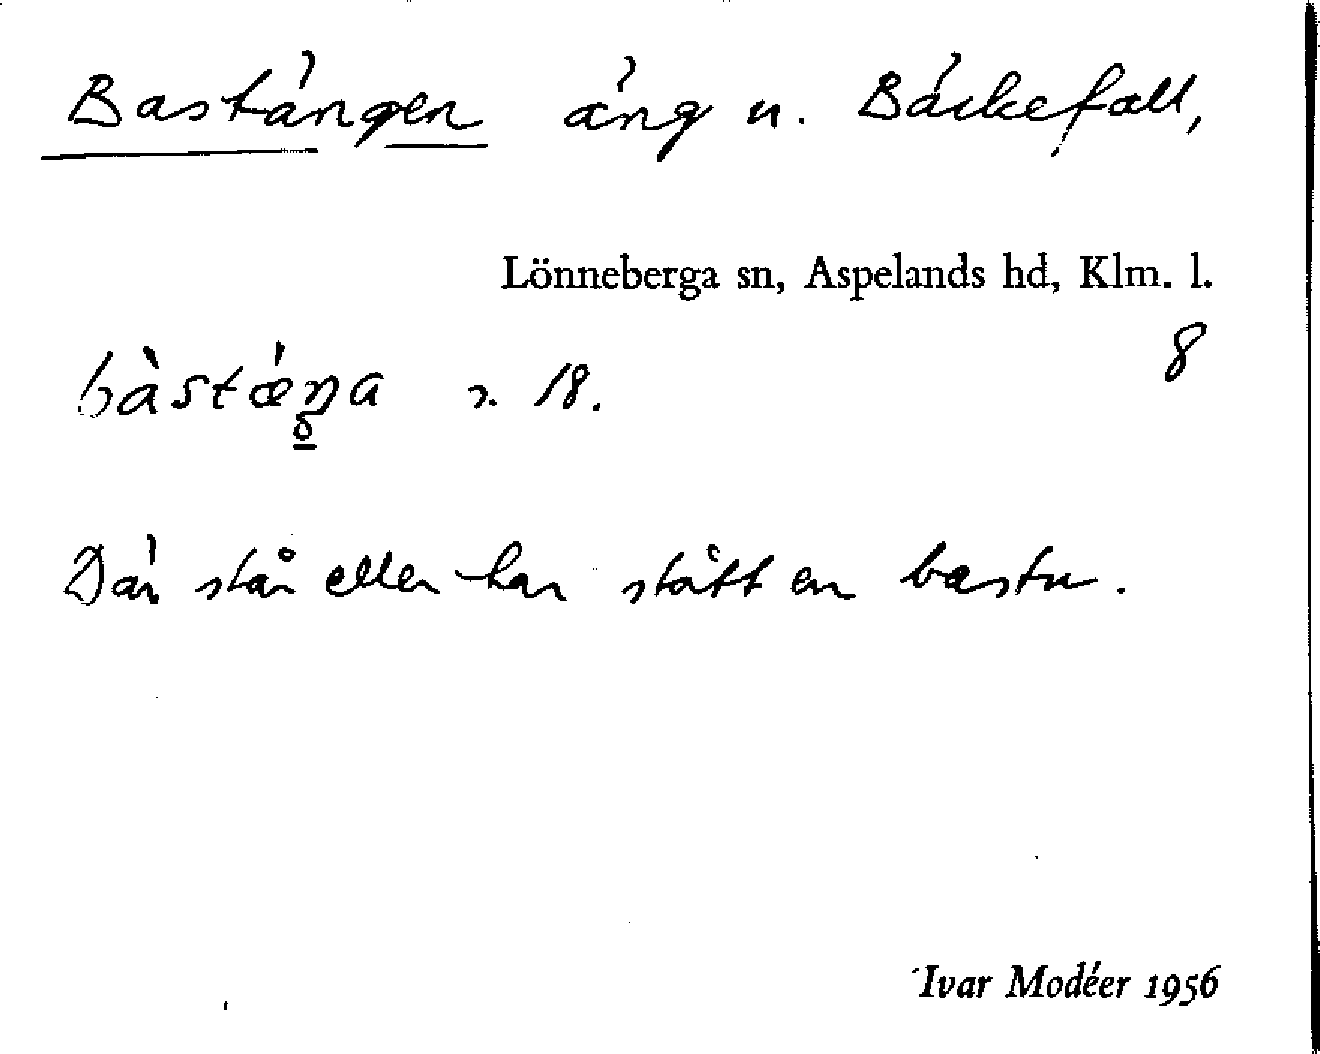 Bastängen äng u. Bäckefall,
Lönneberga sn, Aspelands hd, Klm. l.
8
bàstǽŋa 2. 18.
Där står eller har stått en bastu.
Ivar Modéer 1956